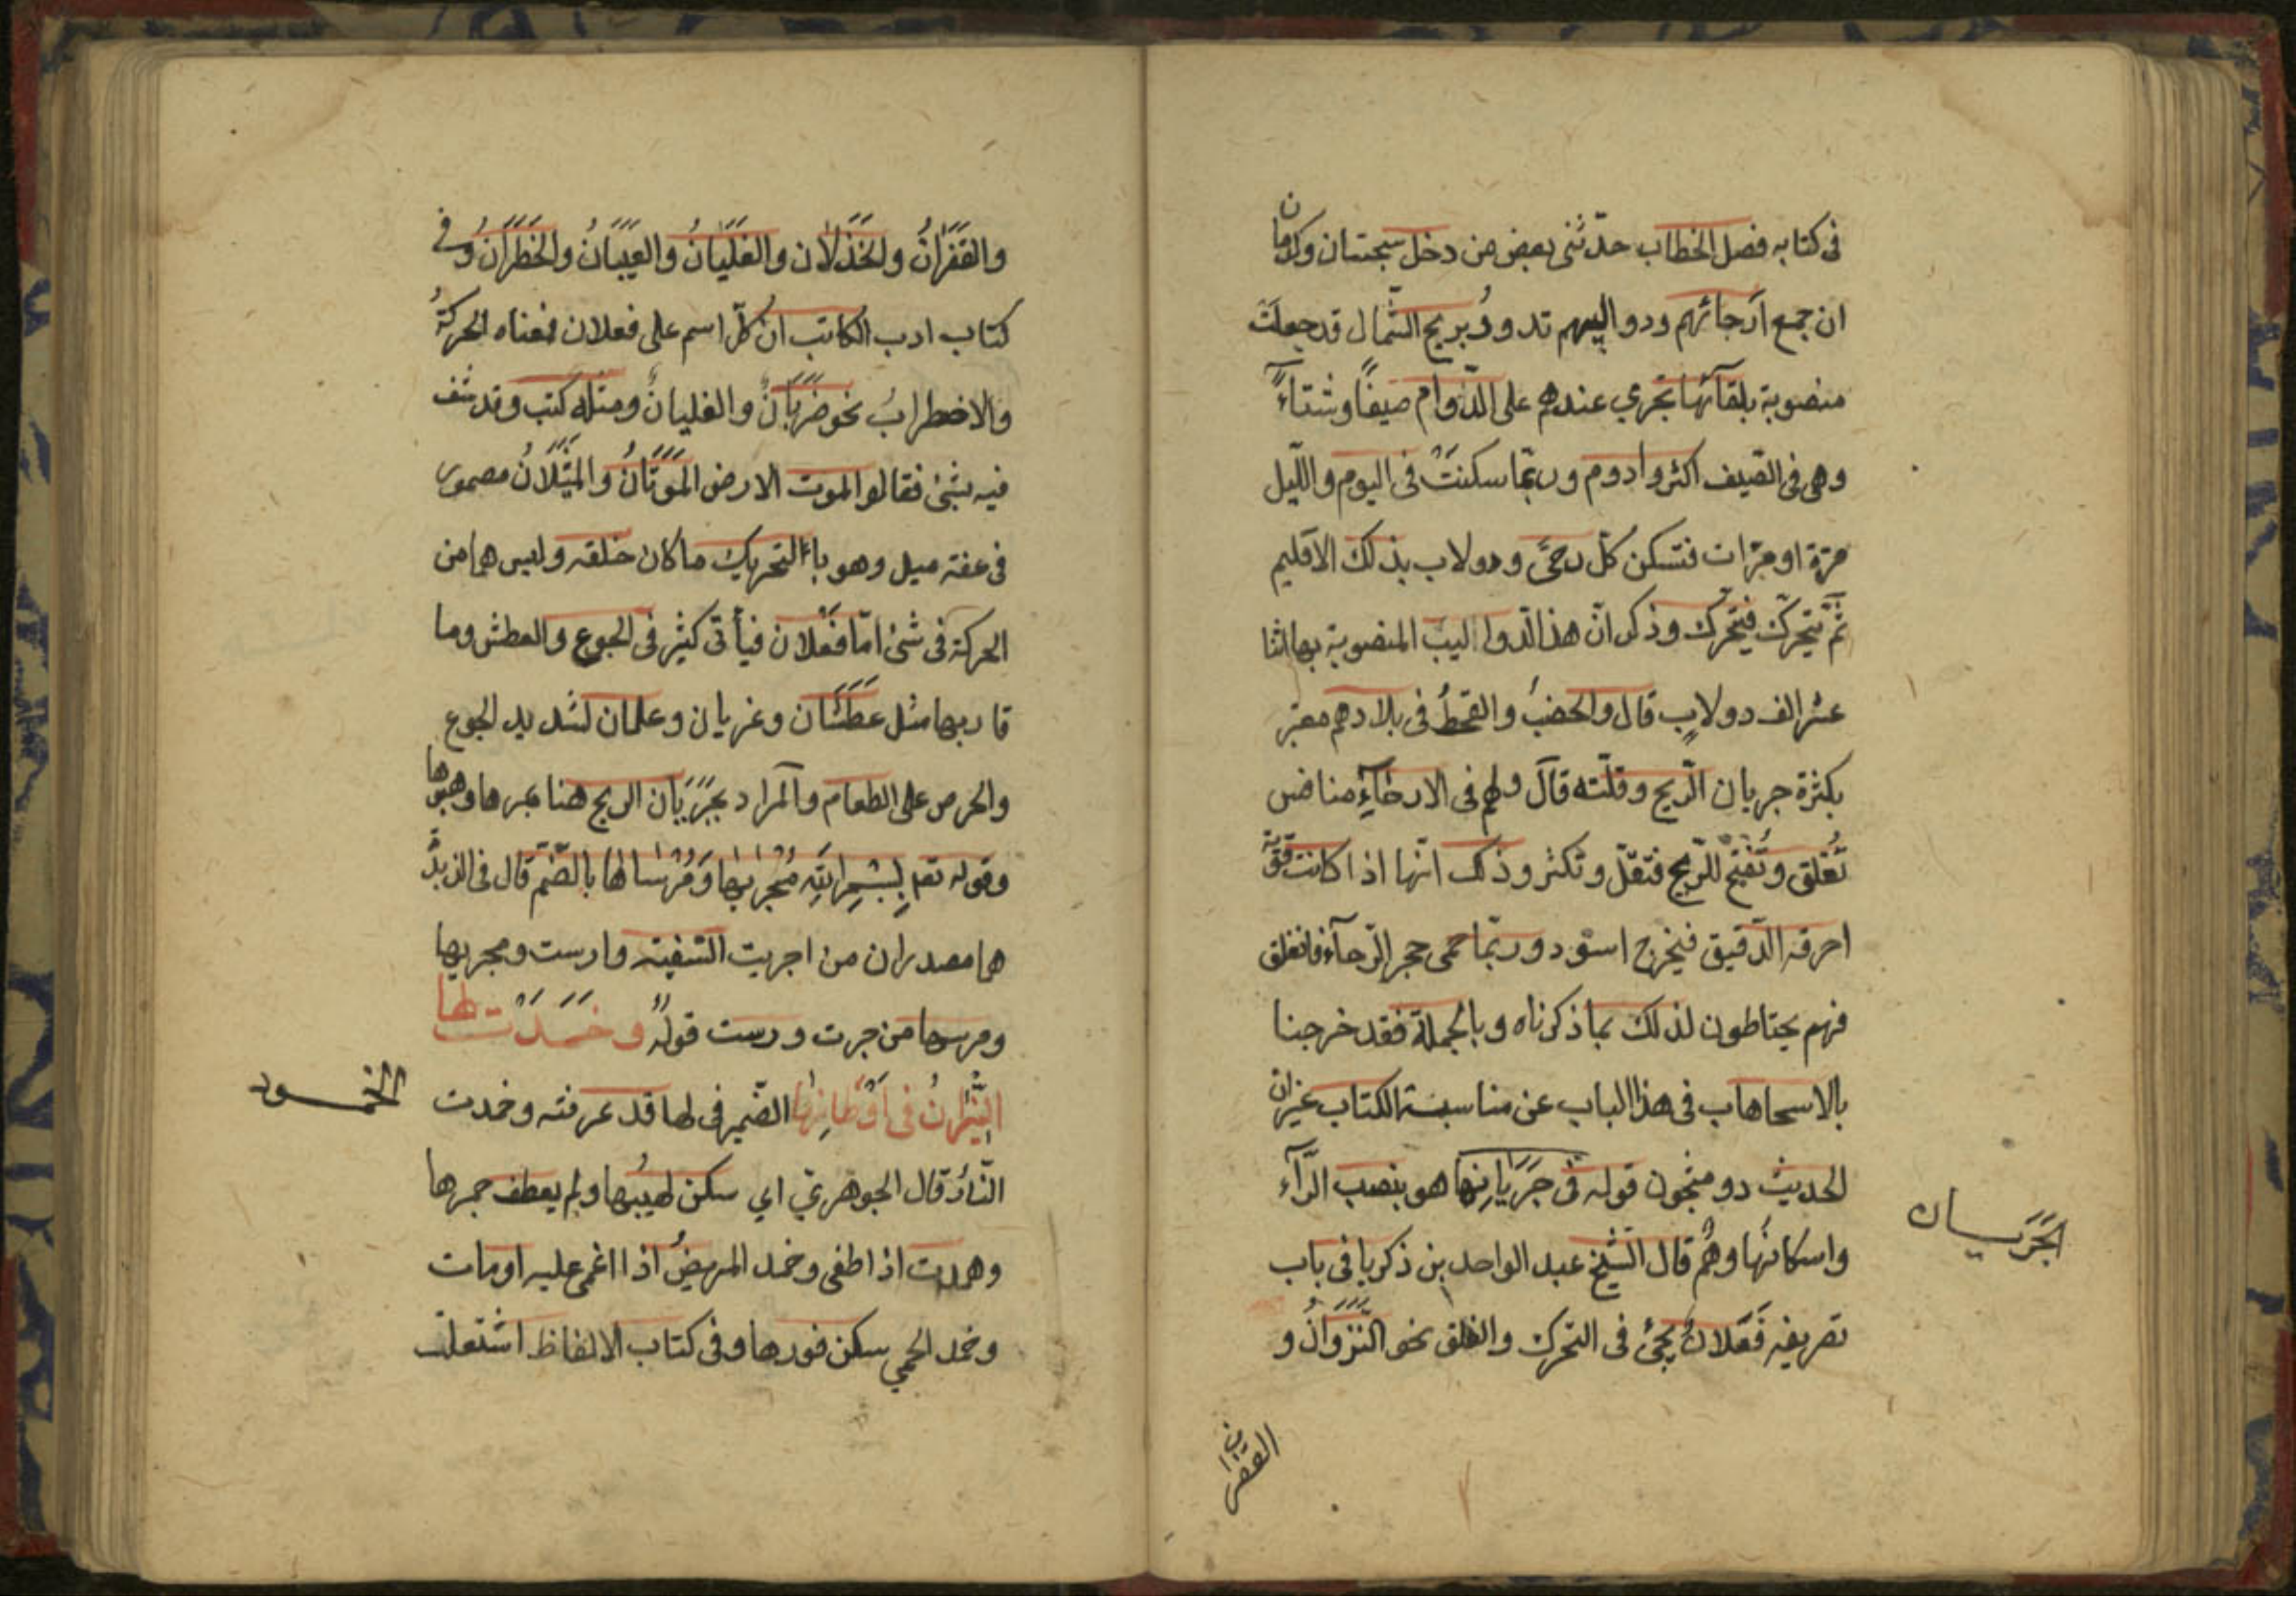 فى كتابه فصل الخطاب حدّثنى بعض من دخل سجستان وكرمان
ان جمع ارحائهم ودواليبهم تدور بريح الشمال قد جعلت
منصوبة بلقآئها تجري عندهم على الدّوام صيفًا وشتاءً
وهى فى الصّيف اكثر وادوم وربّما سكنت فى اليوم والّليل
مرّة او مرّات فتسكن كلّ رحًى ودولاب بذلك الاقليم
ثمّ يتحرّك فيتحرّك وذكر انّ هذ الدواليب المنصوبة بها اثنا
عشر الف دولابٍ قال والخصب والقحطُ فى بلادهم معبّر
بكثرة جريان الرّيح وقلّته قال ولهم فى الارحآءِ منافس
تُغلق وتُفتح للرّيح فتقلّ وتكثر وذلك انّها اذا كانت قويّة
احرقه الدّقيق فيخرج اسود وربّما حمى حجر الرّحآء فانفلق
فهم يحتاطون لذلك بما ذكرناه وبالجملة فقد خرجنا
بالاسهاب فى هذا الباب عن مناسبة الكتاب غير ان
الحديث ذو شجون قوله فى جَرَيَانِها هو بنصب الرّآء
واسكانها وهْمٌ قال الشّيخ عبد الواحد بن زكريا فى باب
تصريفه فَعَلانُ يجئ فى التحرك والقلق نحو النَّزَوَانُ و
الجَرَيَان
القفزان
والقَفَزَانُ والخَذَلَان والغَلَيَانُ والغَيَبَانُ والخَطَرَانُ وفى
كتاب ادب الكاتب ان كلّ اسم على فعلان فمعناه الحركةُ
والاضطرابُ نحو ضَرَبَانٌ والغليانٌ ومثله كتب وقد شف
فيه بشئ فقالوا لموت الارض المَوَتَانُ والمَيَلَانُ مصدر
فى عنقه ميل وهو باء التحريك ما كان خلقه وليس هما من
الحركة فى شئ امّا فَعْلان فيأتى كثير فى الجوع والعطش وما
قاربهما مثل عَطشَان وغريان وعلمان لشديد الجوع
والحرص على الطعام والمراد بجَرَيَان الريح هنا ممرها وهبوبها
وقوله تعم بِسْمِ اللهِ مُجْراٰيٰها وَمُرْسٰاها بالضّم قال فى الذيد
هما مصدران من اجريت السّفينه وارست ومجريها
ومرسها من جرت ورست قوله وَخَمَدَتْ لها
النِّيْرانُ فى اَوْطانِهٰا الضّمير فى لها قد عرفته وخمدت
الخمود
النّارُ قال الجوهريّ اي سكن لهيبُها ولم يطف جمرها
وهمدت اذا طفى وخمد المريضُ اذا اغمى عليه او مات
وخمد الحمي سكن فورها وفى كتاب الالفاظ اشتعلت